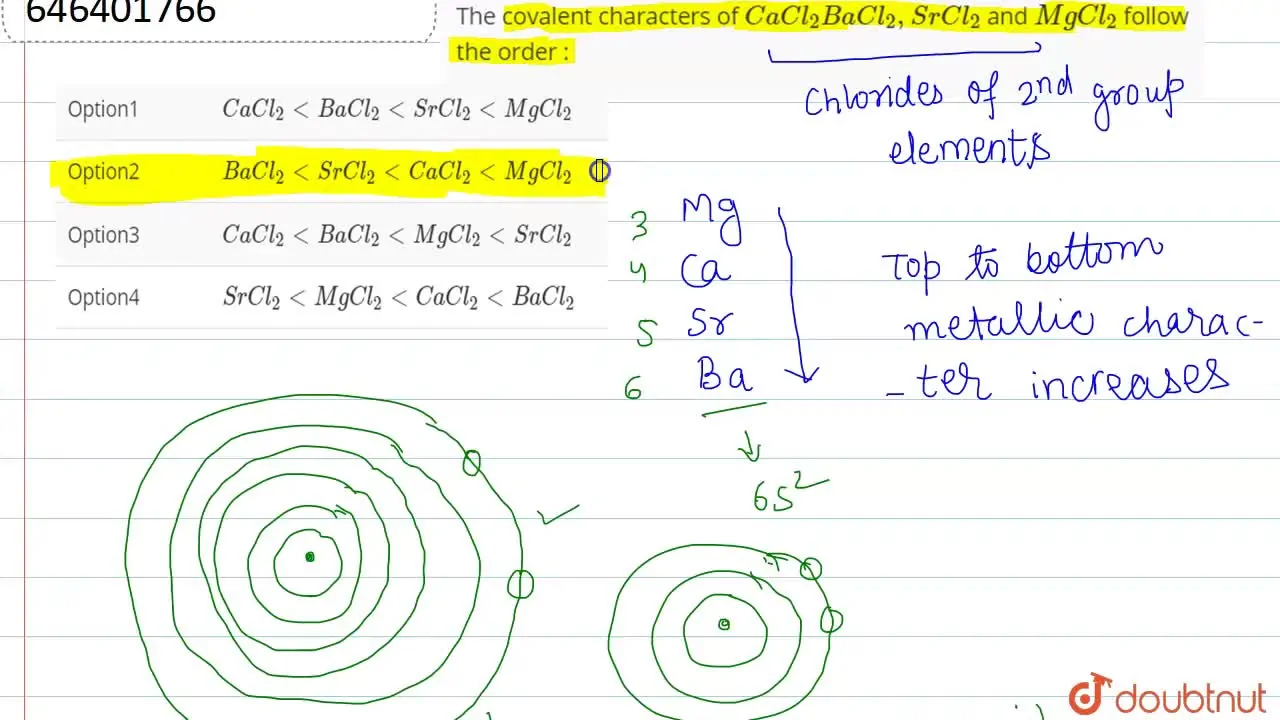 646401766
The covalent characters of CaCl₂BaCl₂, SrCl₂ and MgCl₂ follow
the order :
Chlorides of 2nd group
elements
Option1 CaCl₂ < BaCl₂ < SrCl₂ < MgCl₂
Option2 BaCl₂ < SrCl₂ < CaCl₂ < MgCl₂
Option3 CaCl₂ < BaCl₂ < MgCl₂ < SrCl₂
Option4 SrCl₂ < MgCl₂ < CaCl₂ < BaCl₂
3 Mg
4 Ca
5 Sr
6 Ba
Top to bottom
metallic charac-
-ter increases
6s²
doubtnut